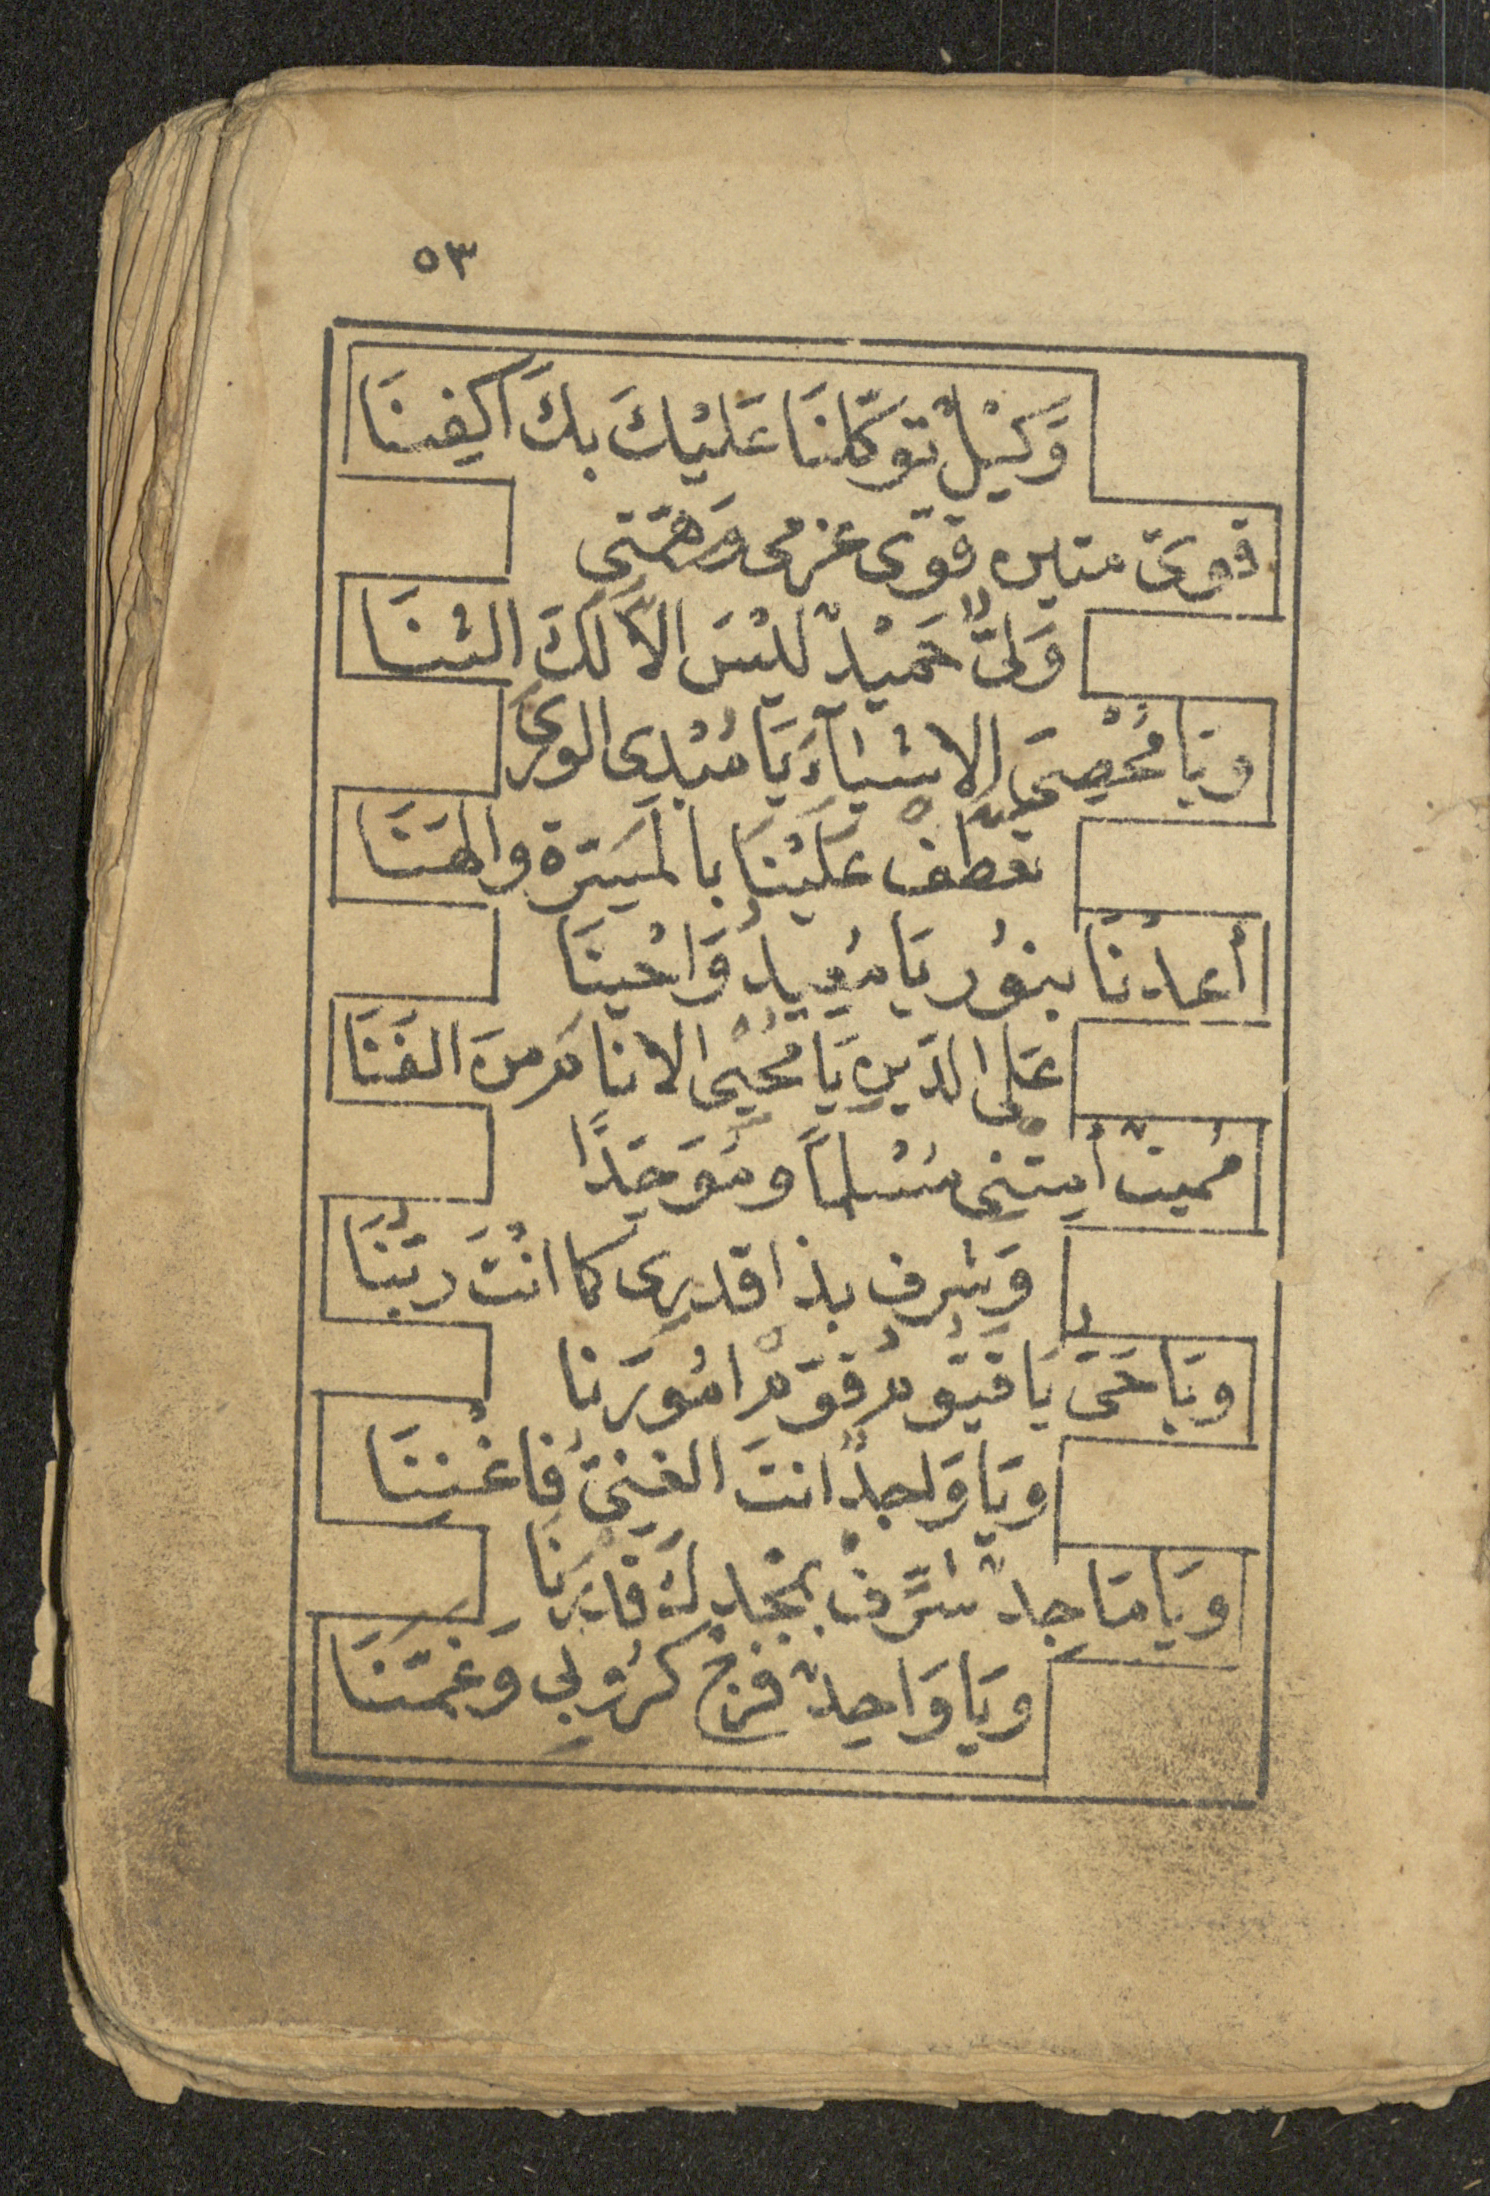 ٥٣
وَكَيْلٌ تَوكّلنَا عَليْكَ بكَ اَكفِنَا
قوىّ متين قوّى عزمى وَهمّتي
وَلىٌّ حَميْدٌ ليْسَ الاّ لَكَ الثنَا
ويَا مُحْصِىَ الاشيَآءَ يَا مُبْدِى الورَى
تعطفْ عَلَيْنَا بالمَسَرّة والهَنَا
أعدْنَا بنوُر يَا مُعيدُ وَاحْينَا
عَلى الدّينِ يَا مُحْيِى الانامِ مِنَ الفَنَا
مُميتٌ أمِتْنِى مُسْلماً ومُوَحّدًا
وَشرف بذا قدرِى كما انْتَ ربّنَا
ويَا حَىُّ يَا قَيّوُمُ قوّمْ امُورَنا
ويَا وَاجدٌ انتَ الغَنِىّ فَاغْننَا
ويَا مَاجِدٌ شرّفْ بمَجْدِكَ قدْرَنَا
ويَا وَاحِدٌ فرّجْ كرُوبِي وَغمّنَا